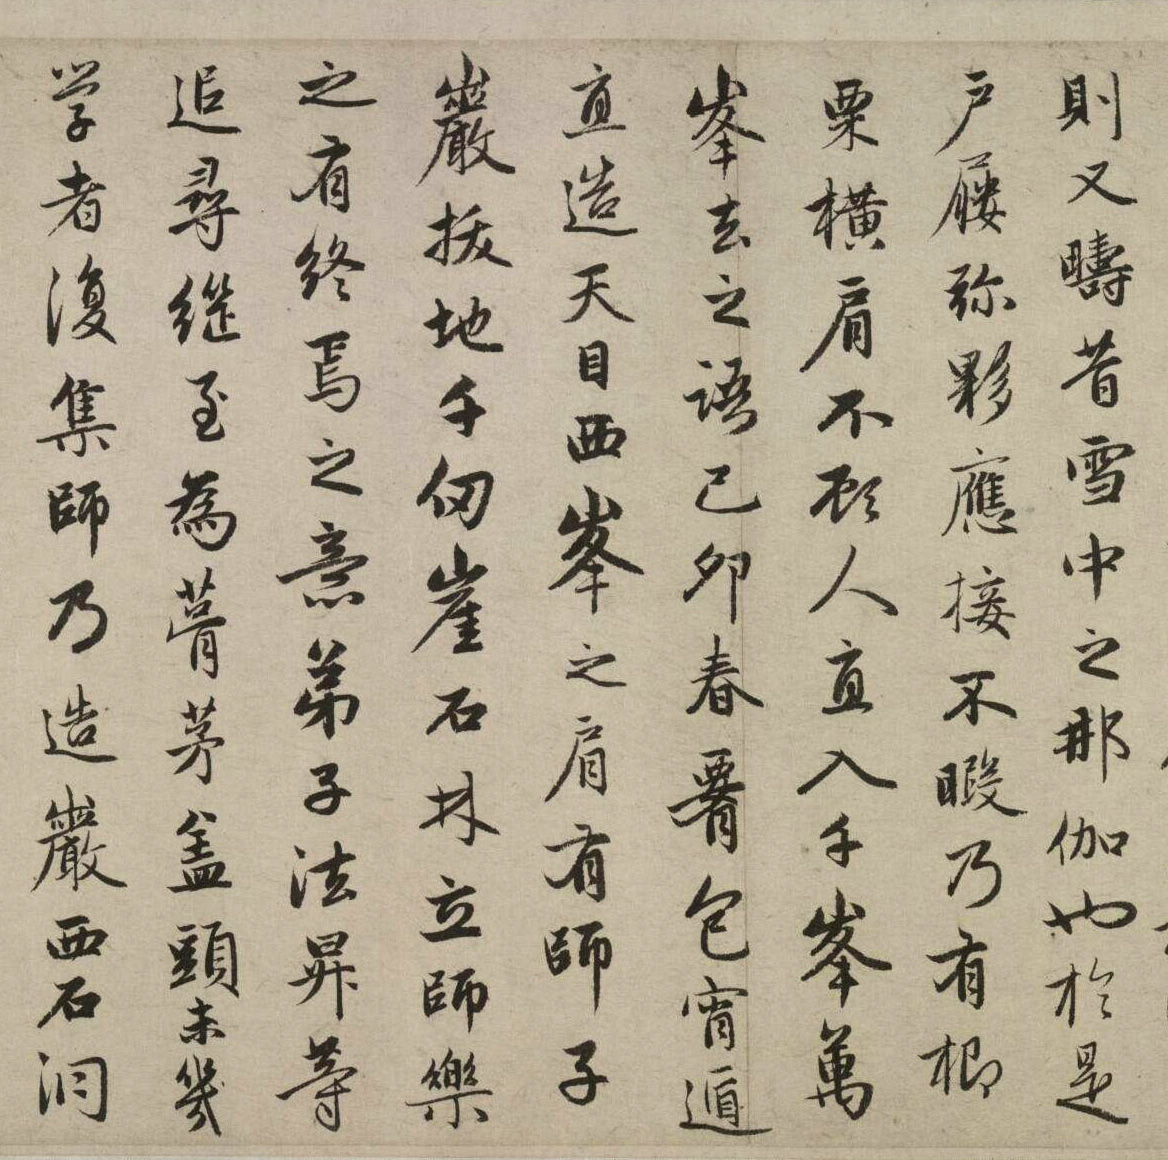 則又疇昔雪中之那伽也於是
户屨弥夥應接不暇乃有楖
栗橫肩不顧人直入千峯萬
峯去之語己卯春罯包宵遁
直造天目西峯之肩有師子
巖拔地千仞崖石林立師樂
之有終焉之意弟子法昇等
追尋継至為葺茅盖頭未幾
学者復集師乃造巖西石洞